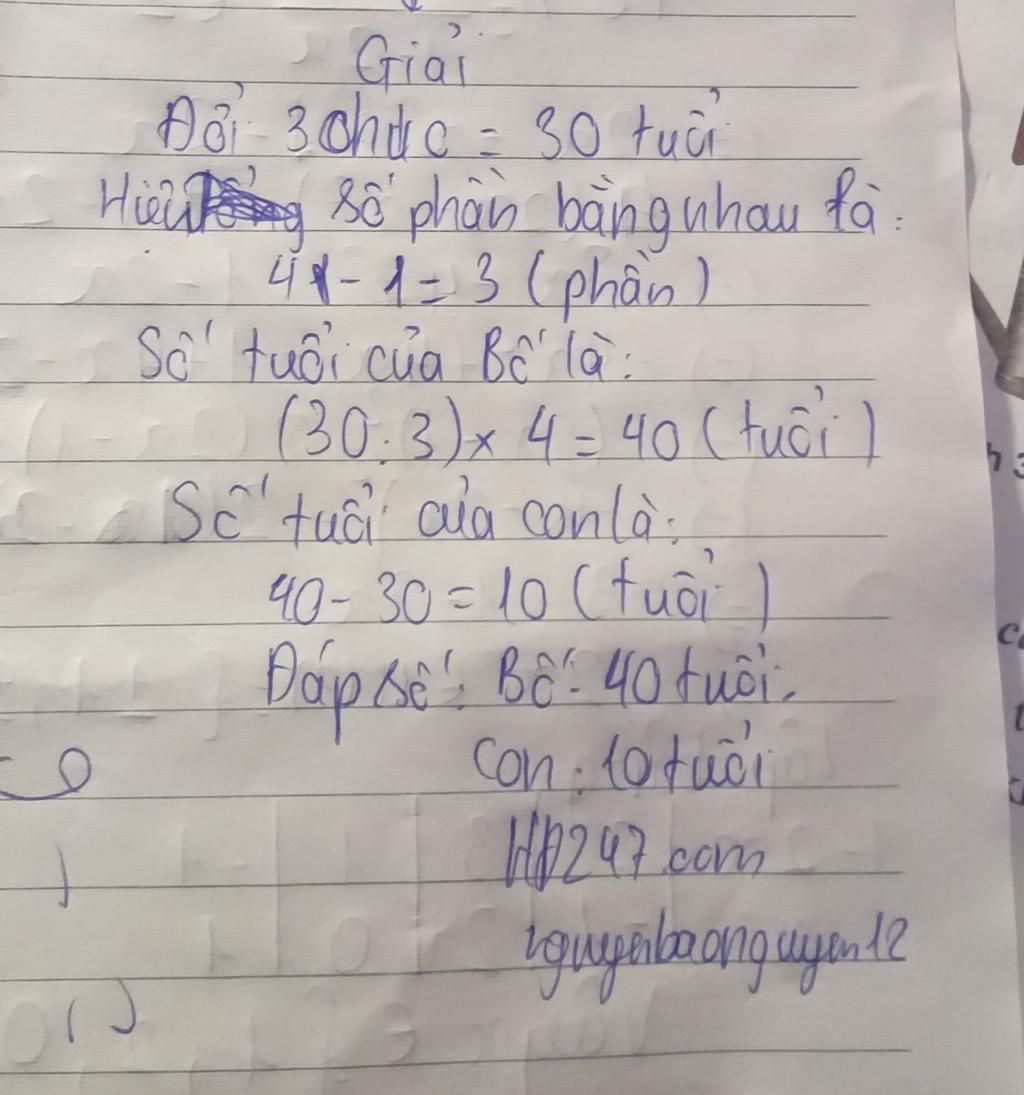 Giải
Đổi 3 chục = 30 tuổi
Hiệu số phần bằng nhau là:
4 - 1 = 3 (phần)
Số tuổi của Bố là:
(30 : 3) x 4 = 40 (tuổi)
Số tuổi của con là:
40 - 30 = 10 (tuổi)
Đáp số: Bố: 40 tuổi.
Con: 10 tuổi
HD247.com
nguyenbaonguyen12